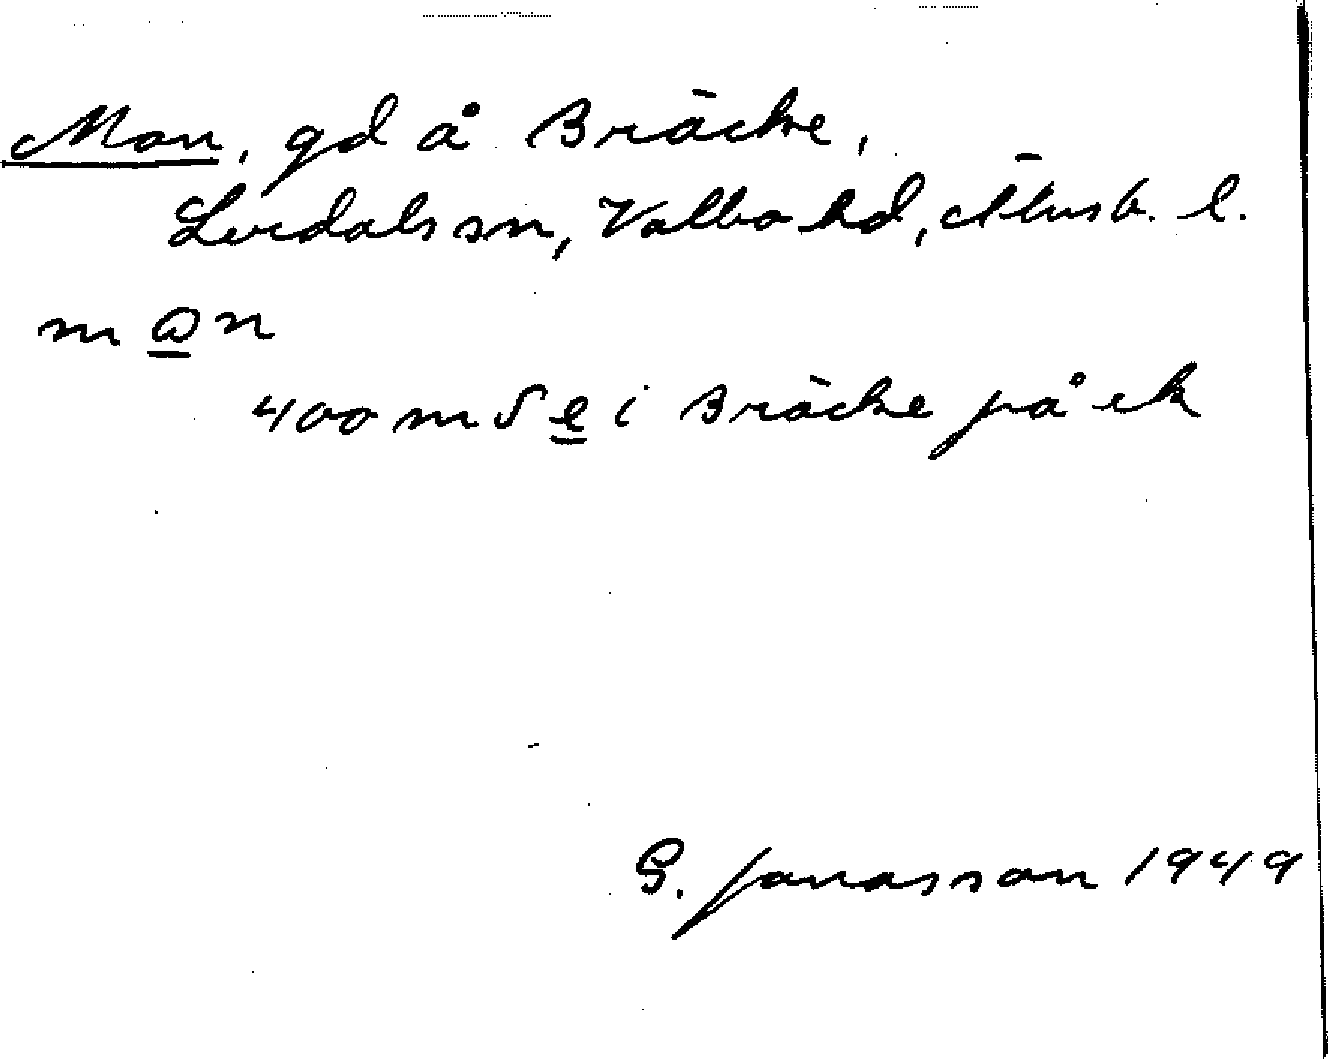 Mon, gd å Bräcke,
Lerdals sn, Valbo hd, Älvsb. l.
m o n
400 m S e i Bräcke på ek
G. Jonasson 1949